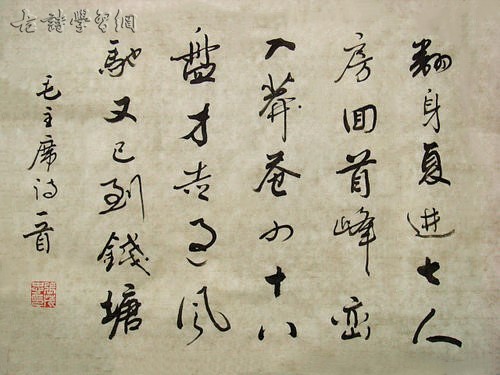 翻身复進七人
房囬首峰峦
入莽苍四十八
盤才走過風
馳又已到錢塘
毛主席诗一首
古詩學習網